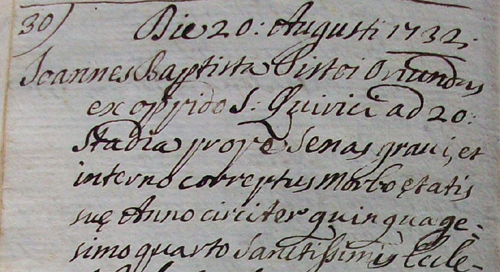 30) Die 20: Augusti 1732;
Joannes Baptista Pistoi Oriundus
ex oppido S: Quirici ad 20:
stadia propè Senas gravi, et
interno correptus Morbo ętatis
suę Anno circiter quinquage-
simo quarto Sanctissimis Eccle-